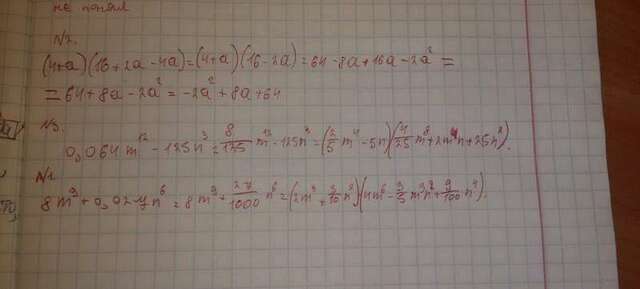 не понял
N2.
(4+a)(16+2a-4a)=(4+a)(16-2a)=64-8a+16a-2a²=
=64+8a-2a²=-2a²+8a+64
N3.
0,064m¹²-125n³=8/125m¹²-125n³=(2/5m⁴-5n)(4/25m⁸+2m⁴n+25n²).
N1
8m⁹+0,027n⁶=8m⁹+27/1000n⁶=(2m³+3/10n²)(4m⁶-3/5m³n²+9/100n⁴).